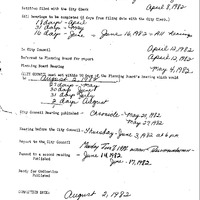 Petition filed with the City Clerk April 8, 1982
(All hearings to be completed 65 days from filing date with the City Clerk.)
April
31 days - May
16 days - June = June 16, 1982 = All hearings
To City Council April 12, 1982
Referred to Planning Board for report April 12, 1982
Planning Board Hearing May 4, 1982
(CITY COUNCIL must act within 90 days of the Planning Board's hearing which would
August 2, 1982
27 days - May
30 days June
31 days July
2 days August
City Council Hearing published - Chronicle - May 20, 1982
May 27, 1982
Hearing before the City Council - Thursday - June 3, 1982 at 6 pm
Report to the City Council
Passed to a second reading - June 14, 1982
Published June 17, 1982
Ready for Ordination
Published
COMPLETION DATE: August 2, 1982